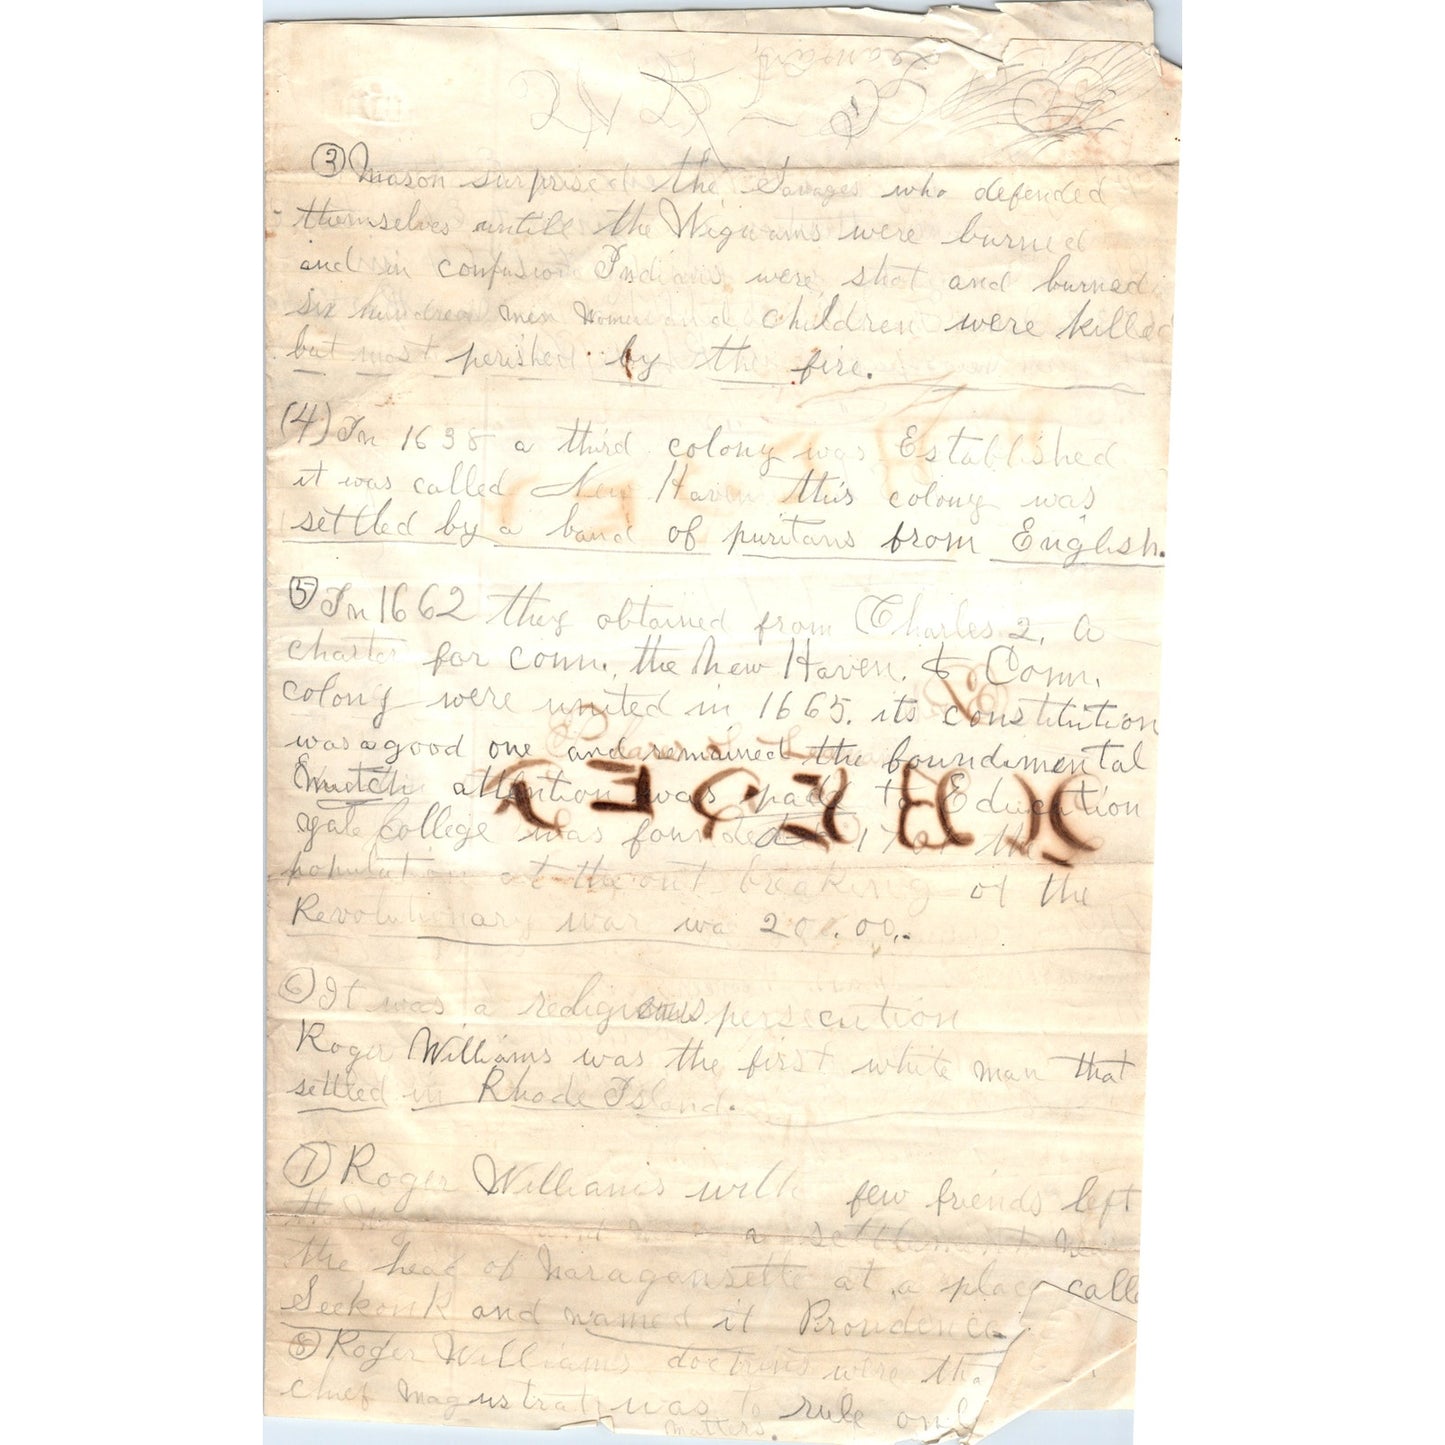 ③ Mason surprised the Savages who defended
themselves untill the Wigwams were burned
and in confusion Indians were shot and burned
six hundred men women and children were killed
but most perished by the fire.
(4) In 1638 a third colony was Established
it was called New Haven this colony was
settled by a band of puritans from English.
⑤ In 1662 they obtained from Charles 2. a
charter for conn. the New Haven. & Conn.
colony were united in 1665. its constitution
was a good one and remained the foundimental
attention was paid to Education
Yale College was founded 1701 the
population at the out breaking of the
Revolutionary war wa 200.00.
⑥ It was a religious persecution
Roger Williams was the first white man that
settled in Rhode Island.
⑦ Roger Williams with few friends left
a settlement
the head of Naragansette at a place calle
Seekonk and named it Providence
⑧ Roger Williams doctrins were tha
chief Magustrat was to rule only
matters.